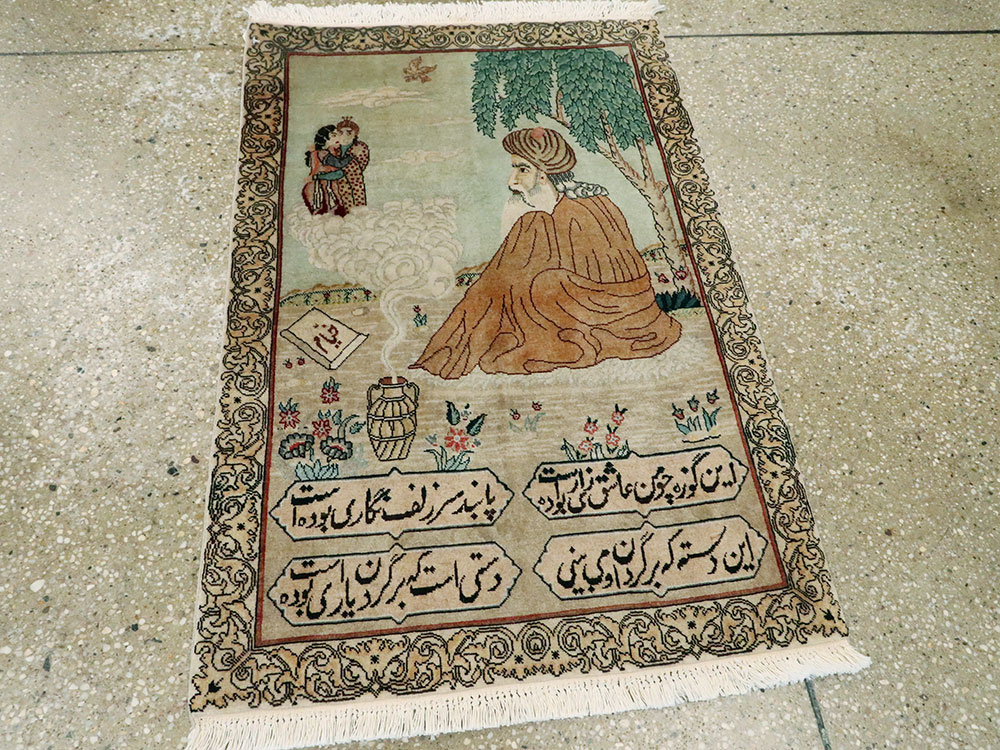 خیام
این کوزه چون عاشق زاری بوده است
پابند سر زلف نگاری بوده است
این دسته که بر گردن او می بینی
دستی است که بر گردن یاری بوده است